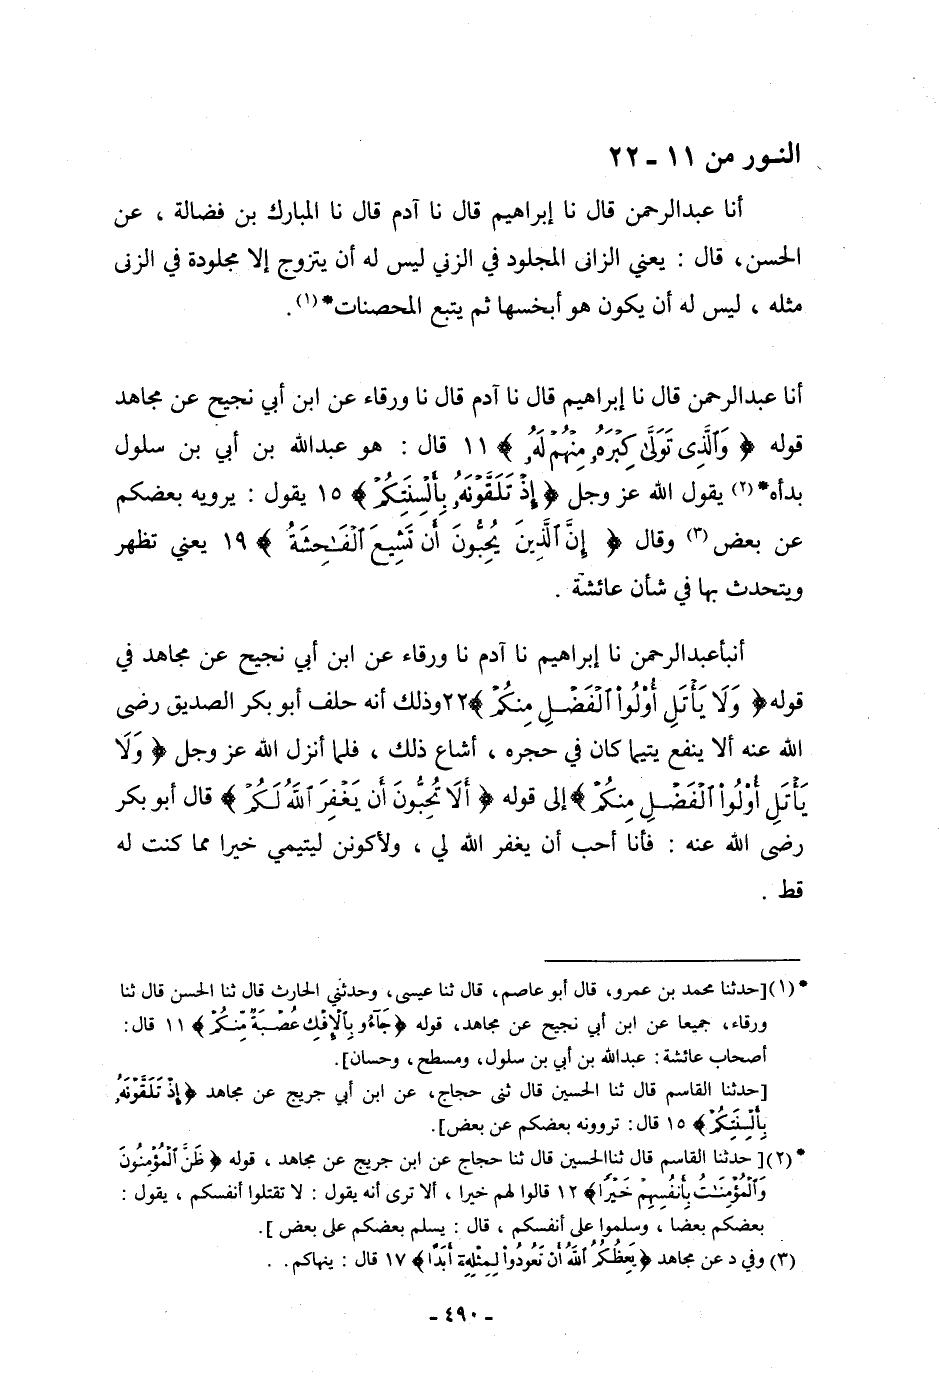 النور من ١١ ـ ٢٢
أنا عبدالرحمن قال نا إبراهيم قال نا آدم قال نا المبارك بن فضالة ، عن
الحسن، قال : يعني الزانى المجلود في الزني ليس له أن يتزوج إلا مجلودة في الزنى
مثله ، ليس له أن يكون هو أبخسها ثم يتبع المحصنات*(١).
أنا عبدالرحمن قال نا إبراهيم قال نا آدم قال نا ورقاء عن ابن أبي نجيح عن مجاهد
قوله ﴿ وَٱلَّذِى تَوَلَّىٰ كِبْرَهُۥ مِنْهُمْ لَهُۥ ﴾ ١١ قال : هو عبدالله بن أبي بن سلول
بدأه*(٢) يقول الله عز وجل ﴿ إِذْ تَلَقَّوْنَهُۥ بِأَلْسِنَتِكُمْ ﴾ ١٥ يقول : يرويه بعضكم
عن بعض(٣) وقال ﴿ إِنَّ ٱلَّذِينَ يُحِبُّونَ أَن تَشِيعَ ٱلْفَٰحِشَةُ ﴾ ١٩ يعني تظهر
ويتحدث بها في شأن عائشة .
أنبأعبدالرحمن نا إبراهيم نا آدم نا ورقاء عن ابن أبي نجيح عن مجاهد في
قوله﴿ وَلَا يَأْتَلِ أُوْلُواْ ٱلْفَضْلِ مِنكُمْ ﴾٢٢وذلك أنه حلف أبو بكر الصديق رضى
الله عنه ألا ينفع يتيما كان في حجره ، أشاع ذلك ، فلما أنزل الله عز وجل ﴿ وَلَا
يَأْتَلِ أُوْلُواْ ٱلْفَضْلِ مِنكُمْ ﴾إلى قوله ﴿ أَلَا تُحِبُّونَ أَن يَغْفِرَ ٱللَّهُ لَكُمْ ﴾ قال أبو بكر
رضى الله عنه : فأنا أحب أن يغفر الله لي ، ولأكونن ليتيمي خيرا مما كنت له
قط .
*(١)[حدثنا محمد بن عمرو، قال أبو عاصم، قال ثنا عيسى، وحدثني الحارث قال ثنا الحسن قال ثنا
ورقاء، جميعا عن ابن أبي نجيح عن مجاهد، قوله ﴿جَآءُو بِٱلْإِفْكِ عُصْبَةٌ مِّنكُمْ﴾ ١١ قال:
أصحاب عائشة : عبدالله بن أبي بن سلول، ومسطح، وحسان].
[حدثنا القاسم قال ثنا الحسين قال ثنى حجاج، عن ابن أبي جريج عن مجاهد ﴿إِذْ تَلَقَّوْنَهُۥ
بِأَلْسِنَتِكُمْ﴾ ١٥ قال: تروونه بعضكم عن بعض].
*(٢)[ حدثنا القاسم قال ثناالحسين قال ثنا حجاج عن ابن جريج عن مجاهد ، قوله ﴿ ظَنَّ ٱلْمُؤْمِنُونَ
وَٱلْمُؤْمِنَٰتُ بِأَنفُسِهِمْ خَيْرًا﴾ ١٢ قالوا لهم خيرا ، ألا ترى أنه يقول : لا تقتلوا أنفسكم ، يقول :
بعضكم بعضا ، وسلموا على أنفسكم ، قال : يسلم بعضكم على بعض ].
(٣) وفي د عن مجاهد ﴿يَعِظُكُمُ ٱللَّهُ أَن تَعُودُواْ لِمِثْلِهِۦٓ أَبَدًا﴾ ١٧ قال : ينهاكم. .
- ٤٩٠ -